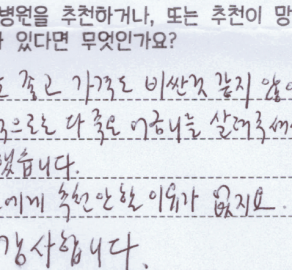 병원을 추천하거나, 또는 추천이 망
있다면 무엇인가요?
좋고 가격도 비싼것 같지 않
다 죽은 어금니를 살려주셔
했습니다.
에게 추천 안할 이유가 없지요.
감사합니다.